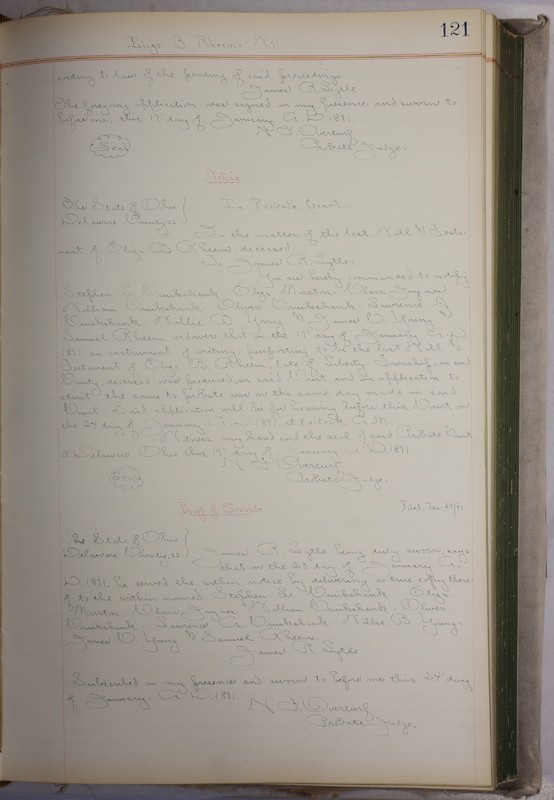 121
Eliza B. Rheem Will
ording to law of the pending of said proceedings
James R. Lytle
The foregoing application was signed in my presence and sworn to
before me, this 19" day of January A.D. 1891.
N. F. Overturf
Probate Judge.
Seal
Notice
The State of Ohio
Delaware County, ss
In Probate Court
In the matter of the last Will & Testa-
ment of Eliza B. Rheem deceased.
To James R. Lytle.
You are hereby commanded to notify
Stephen S. Cruikshank, Eliza Morton, Clara Jaynes
William Cruikshank, Oliver Cruikshank, Lawrence A
Cruikshank, Nillie B. Young & James W. Young &
Samuel Rheem that on the 19" day of January A.D.
1891 an instrument of writing, purporting to be the last Will &
Testament of Eliza B. Rheem, late of Liberty Township, in said
County, deceased, was produced in said Court and an application to
admit the same to probate was on the same day made in said
Court. Said application will be for hearing before this Court on
the 24 day of January A.D. 1891, at o'clock A.M.
Witness my hand and the seal of said Probate Court
at Delaware Ohio this 19" day of January A.D. 1891.
N. F. Overturf
Probate Judge.
Seal
Proof of Service
Filed Jan. 24/91
The State of Ohio
Delaware County, ss
James R. Lytle being duly sworn, says
that on the 20 day of January A.
D. 1891, he served the within notice by delivering a true copy there
of to the within named Stephen S. Cruikshank, Eliza
Morton, Clara Jaynes, William Cruikshank, Oliver
Cruikshank, Lawrence A Cruikshank, Nillie B. Young,
James W. Young & Samuel Rheem.
James R. Lytle
Subscribed in my presence and sworn to before me this 24" day
of January A.D. 1891.
N. F. Overturf
Probate Judge.